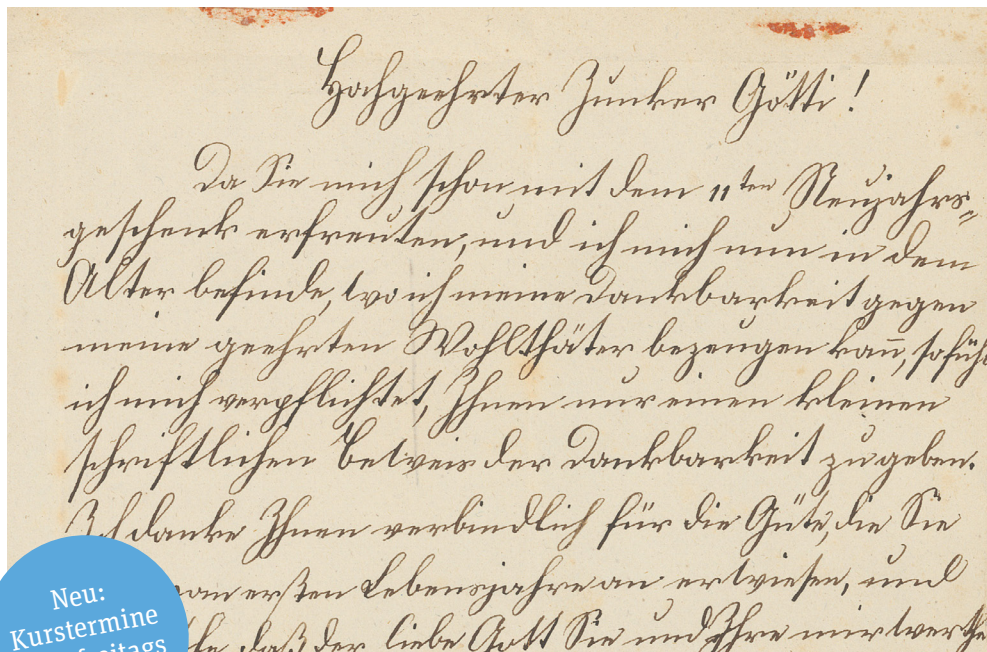 Hochgeehrter Junker Götti!
Da Sie mich schon mit dem 11ten Neujahrs=
geschenk erfreuten, und ich mich nun in dem
Alter befinde, wo ich meine Dankbarkeit gegen
meine geehrten Wohlthäter bezeugen kan̄, so füh
ich mich verpflichtet, Ihnen nur einen kleinen
schriftlichen Beweis der Dankbarkeit zu geben.
Ich danke Ihnen verbindlich für die Güte, die Sie
an ersten Lebensjahre an erwiesen, und
daß der liebe Gott Sie und Ihre mir werthe
Neu:
Kurstermine
freitags